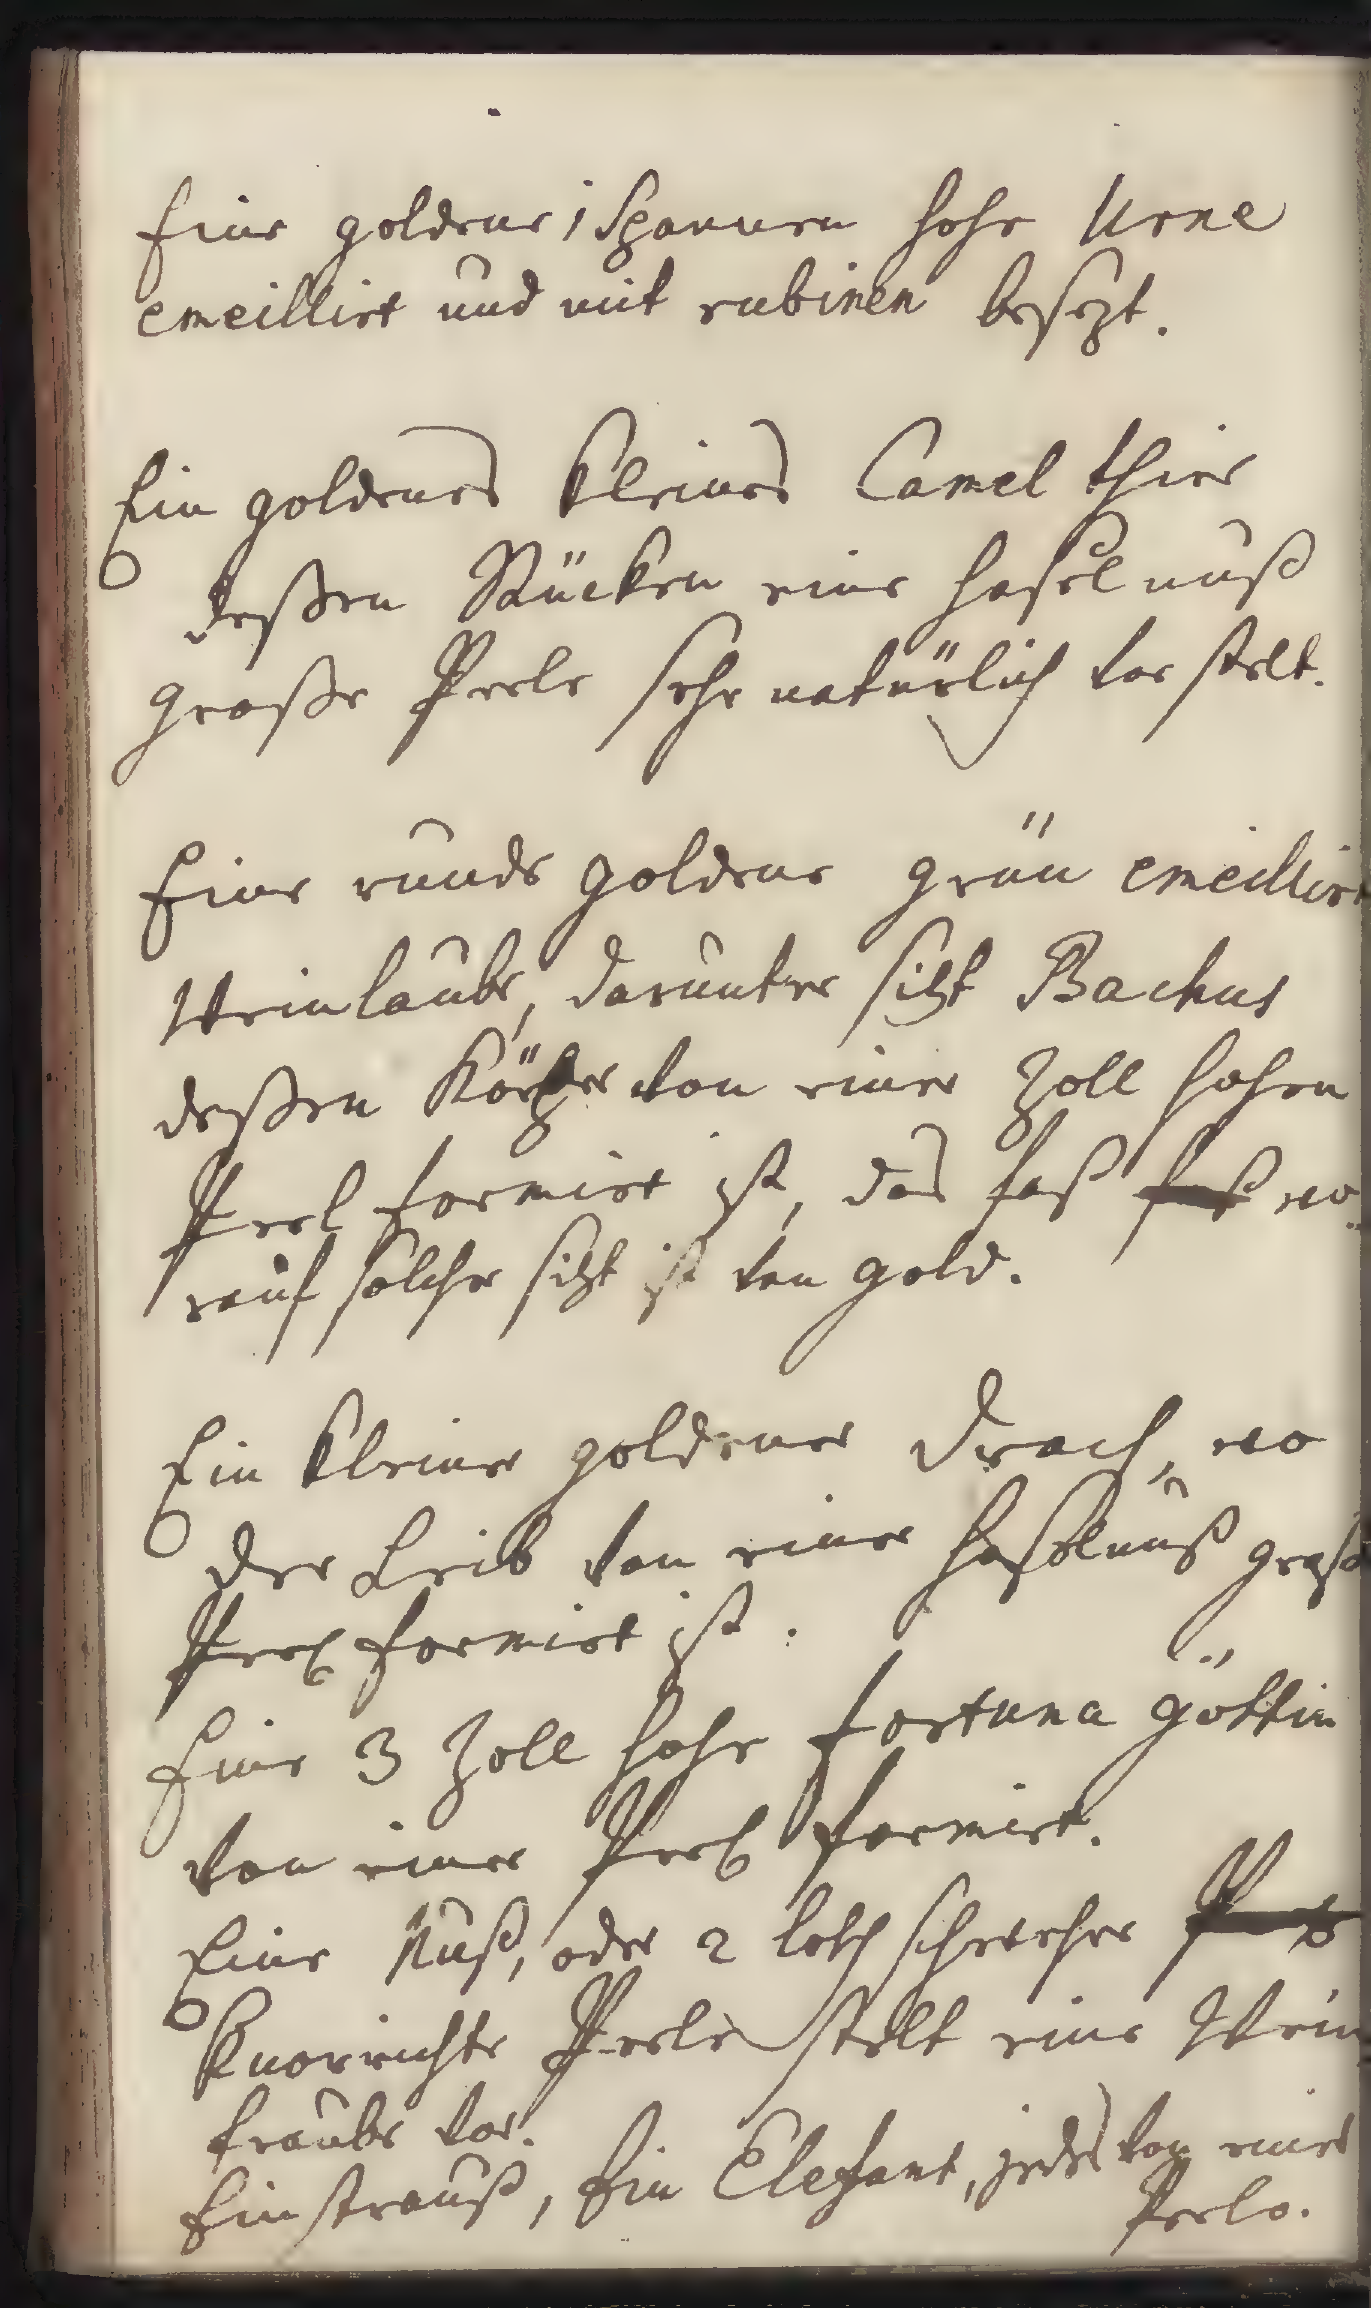 Eine goldene 1 Spannen hohe Urne
emeillirt und mit rubinen besezt.
Ein goldenes kleines Camel thier
deßen Rücken eine haselnuß
große Perle sehr natürlich vorstelt.
Eine runde goldene grün emeillirt
Weinlaube, darunter sitzt Bachus
deßen Körper von einer Zoll hohen
Perl formirt ist, das faß faß wo-
rauf solcher sitzt ist von gold.
Ein kleiner goldener Drach, wo
der Leib von einer haselnuß große
Perl formirt ist.
Eine 3 Zoll hohe fortuna göttin
von einer Perl formirt.
Eine Nuß, oder 2 loth schwehre
Knorrichte Perle stelt eine Wein
traube vor.
Ein strauß, Ein Elefant, jedes von einer
Perle.